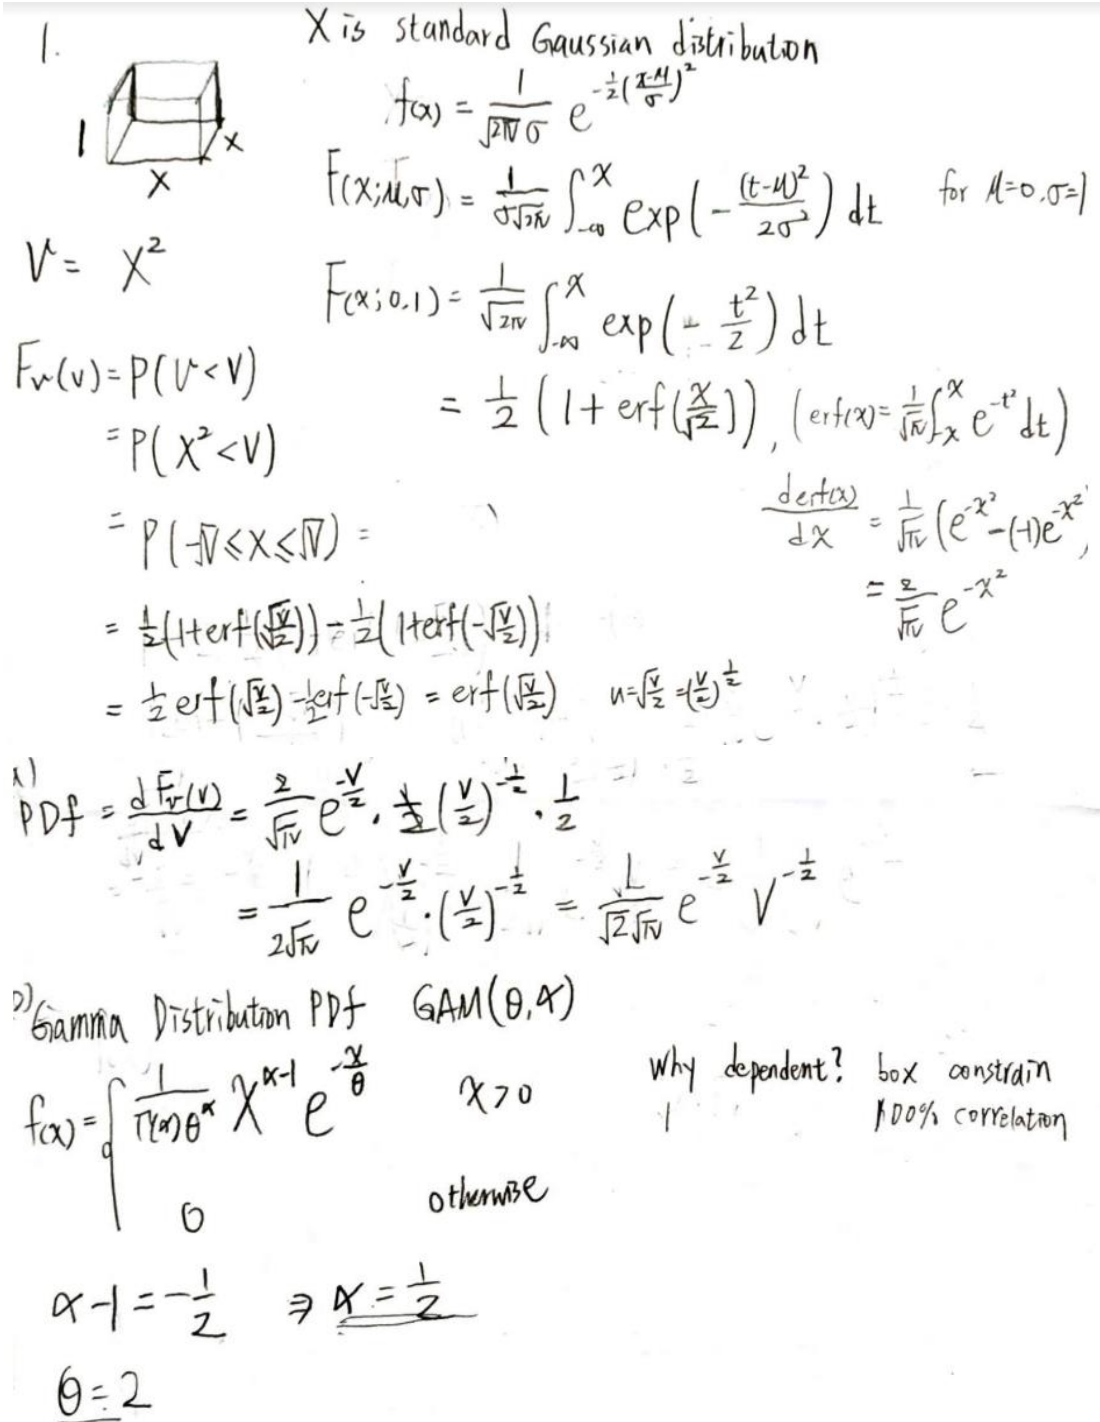 1.
X is standard Gaussian distribution
f(x) = 1/(√(2π) σ) e^(-1/2 ((x-μ)/σ)^2)
1 X X
F(x;μ,σ) = 1/(σ√(2π)) ∫_{-∞}^{x} exp(- (t-μ)^2/(2σ^2)) dt for μ=0, σ=1
V = X^2
F(x;0,1) = 1/√(2π) ∫_{-∞}^{x} exp(- t^2/2) dt
= 1/2 (1 + erf(x/√2)), (erf(x) = 1/√π ∫_{-x}^{x} e^(-t^2) dt)
d erf(x)/dx = 1/√π (e^(-x^2) - (-1)e^(-x^2))
= 2/√π e^(-x^2)
F_V(v) = P(V < V)
= P(X^2 < V)
= P(-√V ≤ X ≤ √V) =
= 1/2 (1+erf(√(V/2))) - 1/2 (1+erf(-√(V/2)))
= 1/2 erf(√(V/2)) - 1/2 erf(-√(V/2)) = erf(√(V/2)) u = √(V/2) = (V/2)^(1/2)
PDf = dF_V(V)/dV = 2/√π e^(-V/2) · 1/2 (V/2)^(-1/2) · 1/2
= 1/(2√π) e^(-V/2) · (V/2)^(-1/2) = 1/(√2 √π) e^(-V/2) V^(-1/2)
Gamma Distribution PDf GAM(θ, α)
f(x) = { 1/(Γ(α)θ^α) X^(α-1) e^(-x/θ) x > 0
0 otherwise
α-1 = -1/2 ⇒ α = 1/2
θ = 2
Why dependent? box constrain
100% correlation